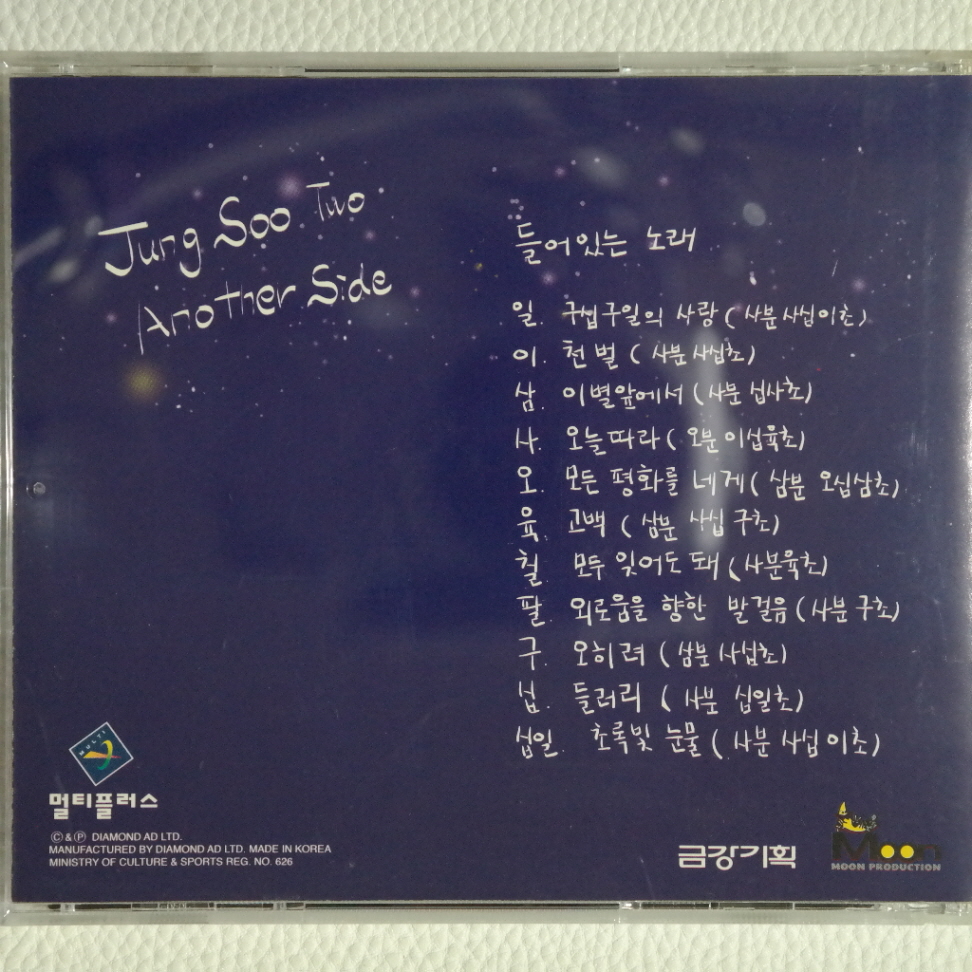 Jung Soo Two
Another Side
들어있는 노래
일. 구십구일의 사랑 (사분 사십이초)
이. 천벌 (사분 사십초)
삼. 이별앞에서 (사분 십사초)
사. 오늘따라 (오분 이십육초)
오. 모든 평화를 네게 (삼분 오십삼초)
육. 고백 (삼분 사십 구초)
칠. 모두 잊어도 돼 (사분육초)
팔. 외로움을 향한 발걸음 (사분 구초)
구. 오히려 (삼분 사십초)
십. 들러리 (사분 십일초)
십일. 초록빛 눈물 (사분 사십 이초)
MULTI
멀티플러스
Ⓒ & Ⓟ DIAMOND AD LTD.
MANUFACTURED BY DIAMOND AD LTD. MADE IN KOREA
MINISTRY OF CULTURE & SPORTS REG. NO. 626
금강기획
Moon
MOON PRODUCTION